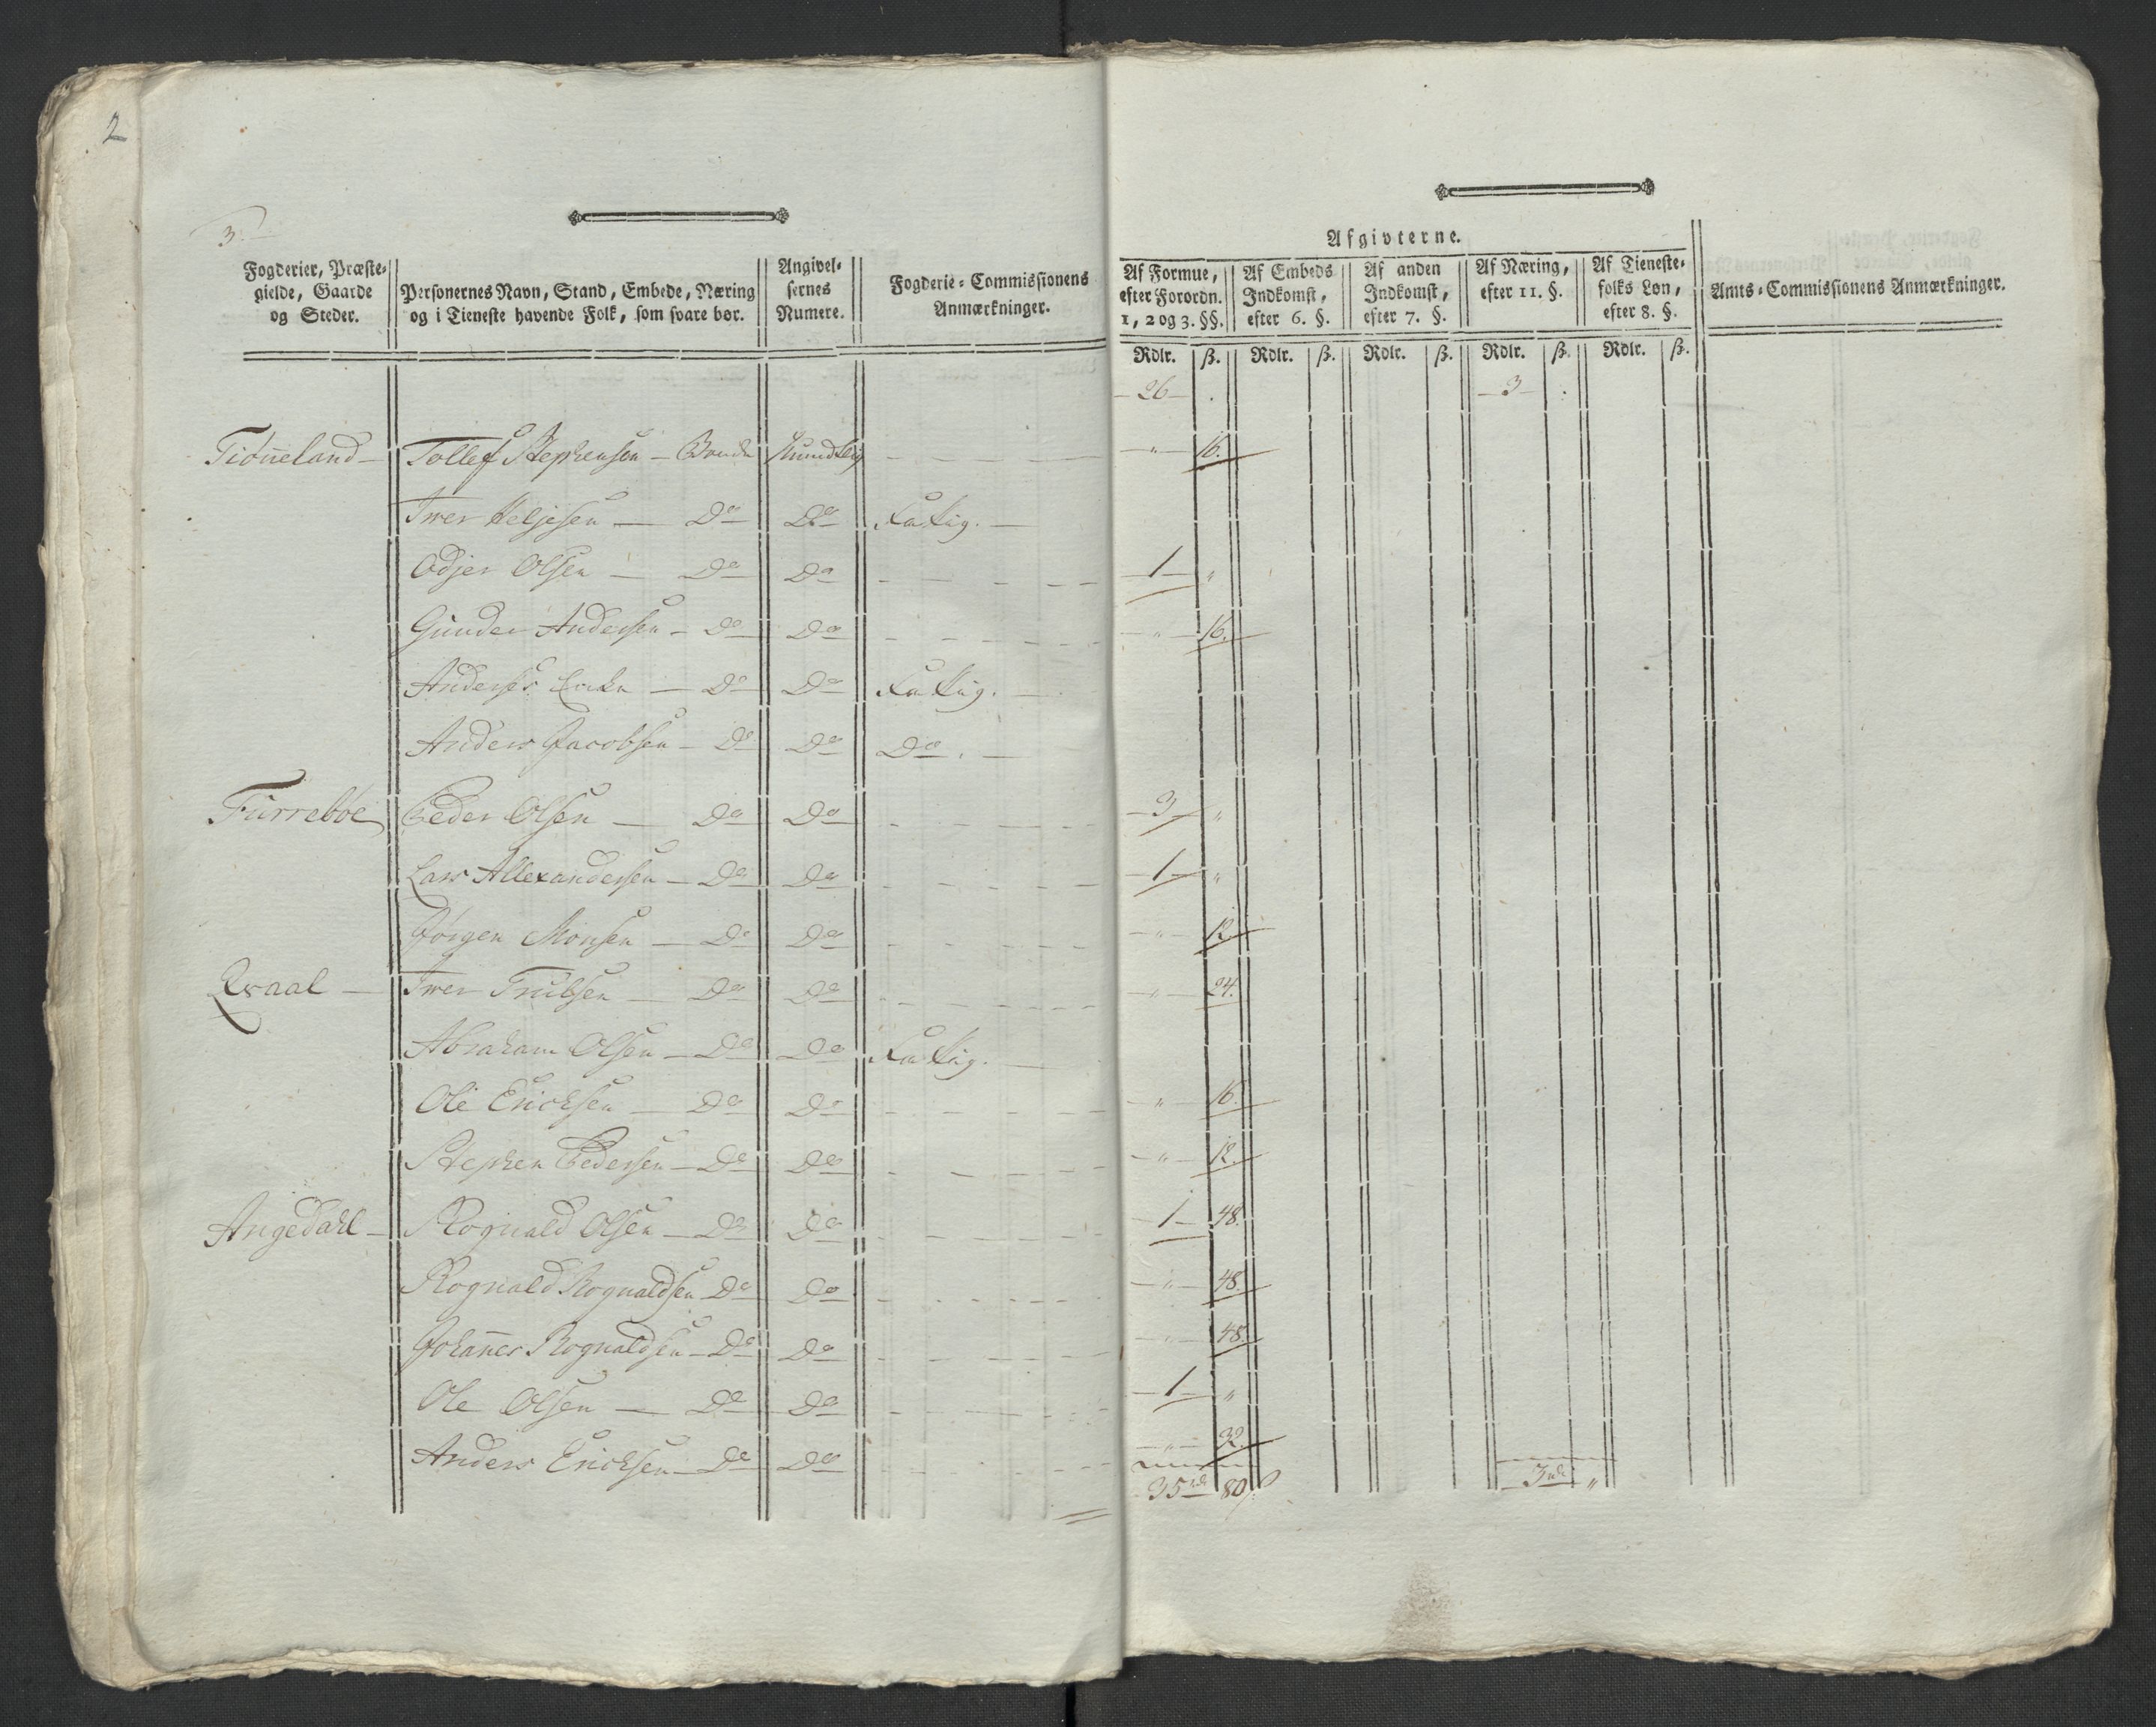 2
3
Fogderier, Præste-
gielde, Gaarde
og Steder.
Personernes Navn, Stand, Embede, Næring
og i Tieneste havende Folk, som svare bør.
Angivel-
sernes
Numere.
Fogderie-Commissionens
Anmærkninger.
Afgivterne.
Af Formue,
efter Forordn.
1, 2 og 3. §§.
Af Embeds
Indkomst,
efter 6. §.
Af anden
Indkomst,
efter 7. §.
Af Næring,
efter 11. §.
Af Tieneste-
folks Løn,
efter 8. §.
Amts-Commissionens Anmærkninger.
Rdlr. ß. Rdlr. ß. Rdlr. ß. Rdlr. ß. Rdlr. ß.
26 . 3 .
Tiøneland Tollef Stephensen Bonde Mundtlig " 16.
Iwer Heljesen Do Do Fattig.
Odjer Olsen Do Do 1 "
Gunder Andersen Do Do " 16.
Anderses Enke Do Do Fattig.
Anders Jacobsen Do Do Do.
Furrebøe Peder Olsen Do Do 3 "
Lars Allexandersen Do Do 1 "
Jørgen Monsen Do Do " 12.
Qvaal Iwer Trulsen Do Do " 24.
Abraham Olsen Do Do Fattig.
Ole Ericksen Do Do " 16.
Stephen Pedersen Do Do " 12.
Angedahl Rognald Olsen Do Do 1 48.
Rognald Rognaldsen Do Do " 48.
Johannes Rognaldsen Do Do " 48.
Ole Olsen Do Do 1 "
Anders Ericksen Do Do " 32.
35 rdr 80 ß 3 rdr "